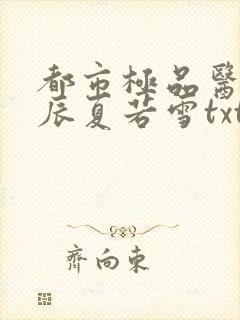 都市極品醫
辰夏若雪txt
齊向東